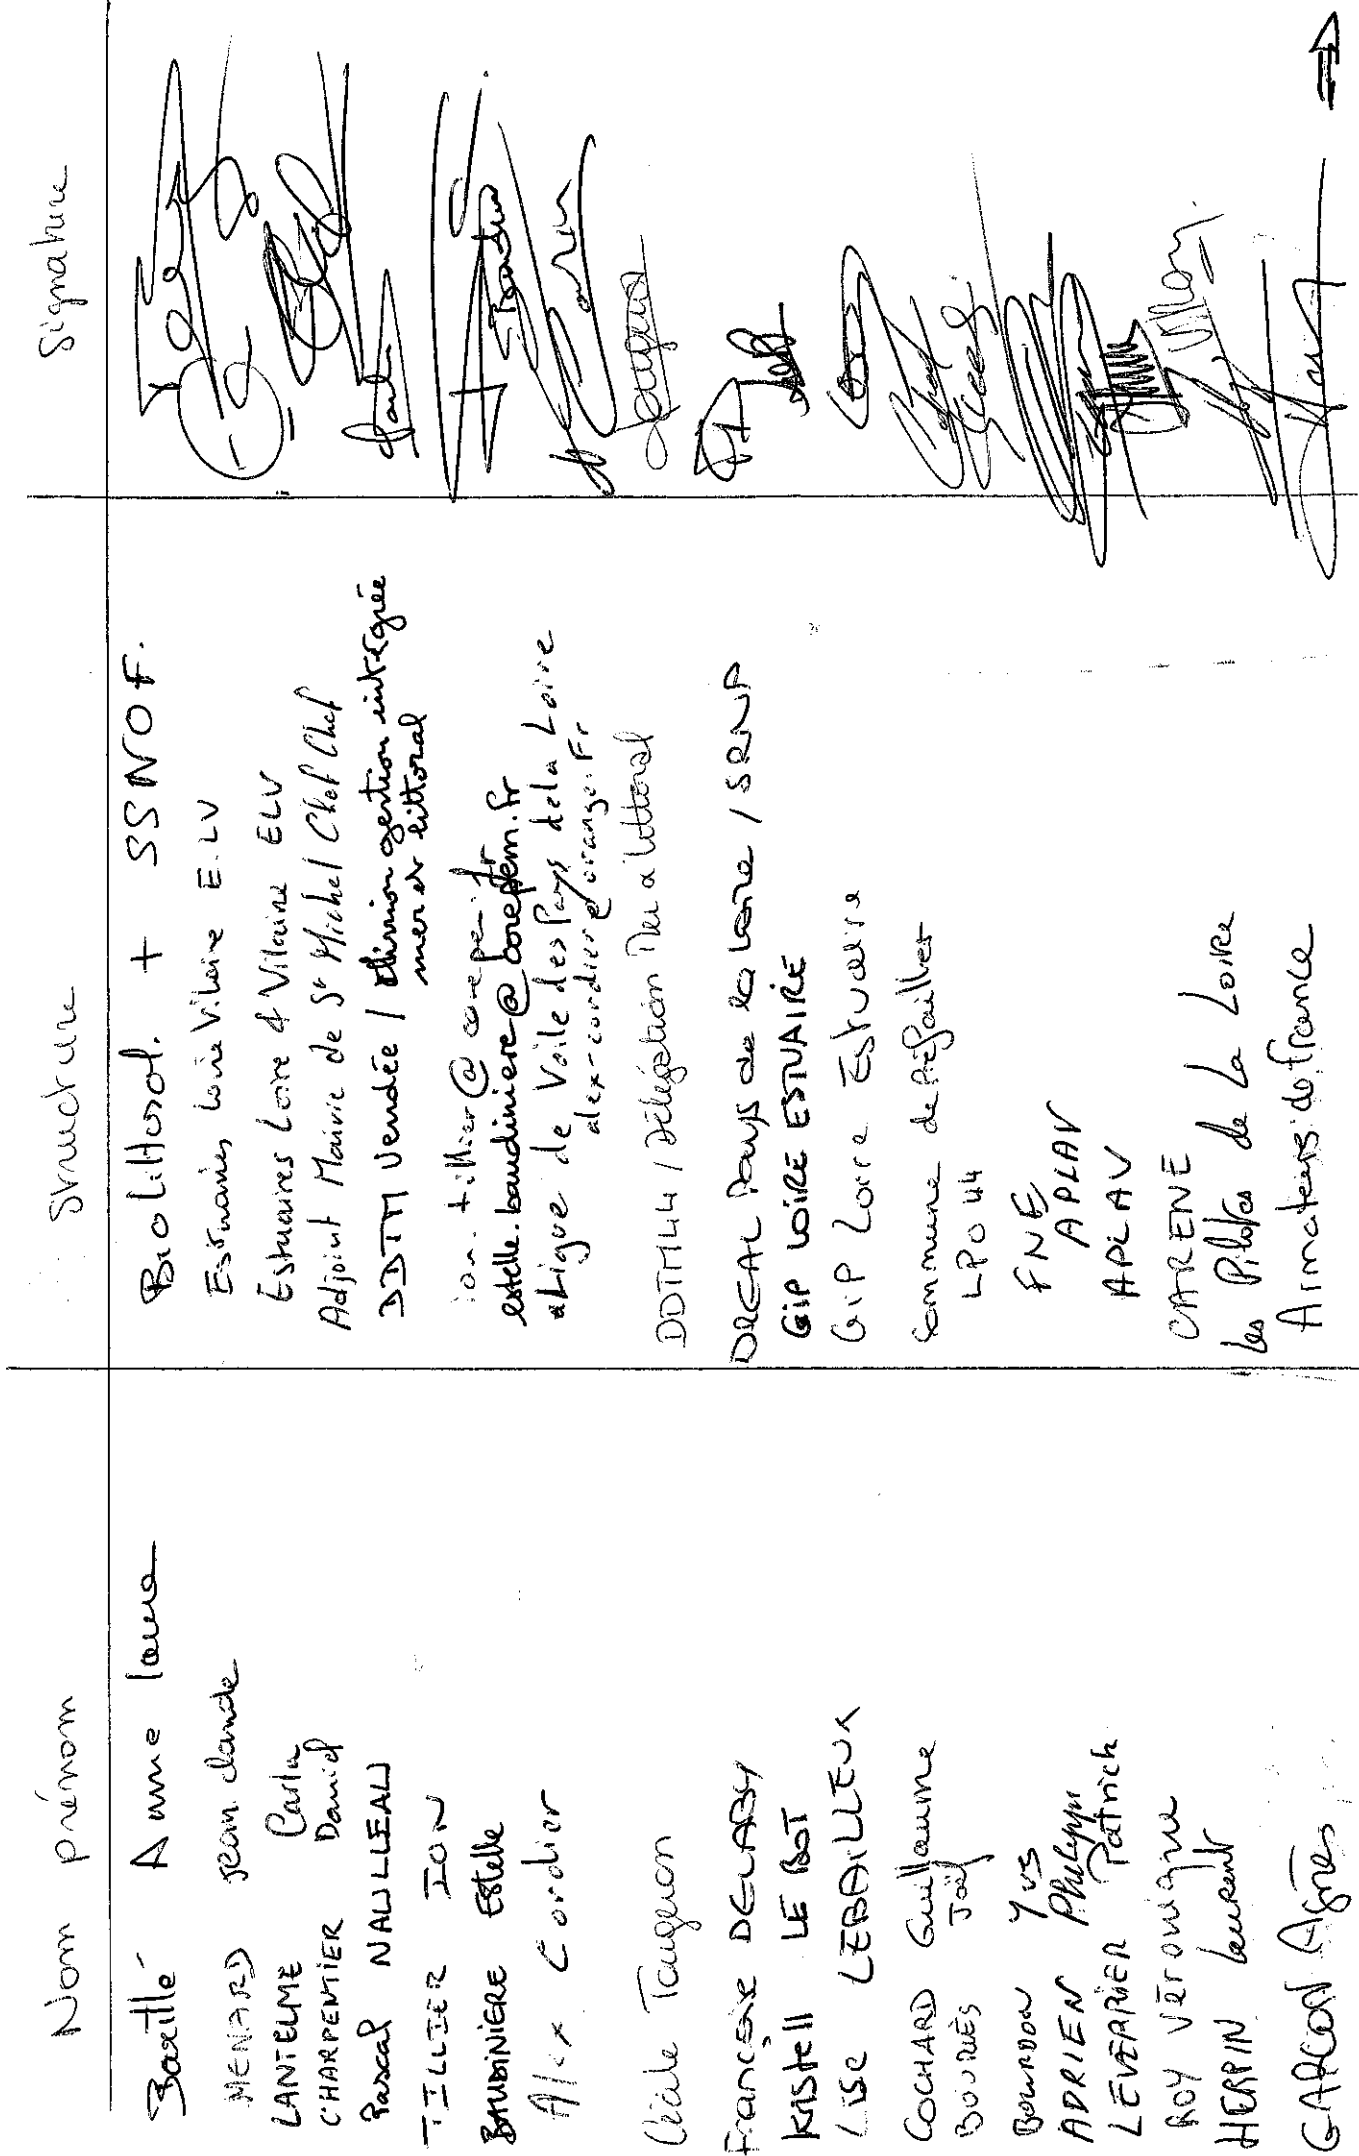 Nom prénom Structure Signature
Barillé Anne laure Biolittoral. + SSNOF.
MENARD Jean Claude Estuaires Loire Vilaine E.LV
LANTELME Carla Estuaires Loire & Vilaine ELV
CHARPENTIER Daniel Adjoint Mairie de St Michel Chef Chef
Pascal NAULLEAU DDTM Vendée / division gestion intégrée
mer et littoral
TILLIER ION ion.tillier@corepem.fr
BAUDINIERE Estelle estelle.baudiniere@corepem.fr
Alex Cordier Ligue de Voile des Pays de la Loire
alex-cordier@orange.fr
Cécile Tougeron DDTM44 / Délégation Mer & littoral
Françoise DELABY DREAL Pays de la Loire / SRNP
Kristell LE BOT GIP LOIRE ESTUAIRE
Lise LEBAILLEUX GIP Loire Estuaire
COCHARD Guillaume Commune de Préfailles
BOURLÈS Joël LPO 44
BOURDON Yves FNE
ADRIEN Philippe APLAV
LEVERRIER Patrick APLAV
ROY Véronique CARENE
HERPIN Laurent Les Pilotes de La Loire
GARÇON Agnès Armateurs de france